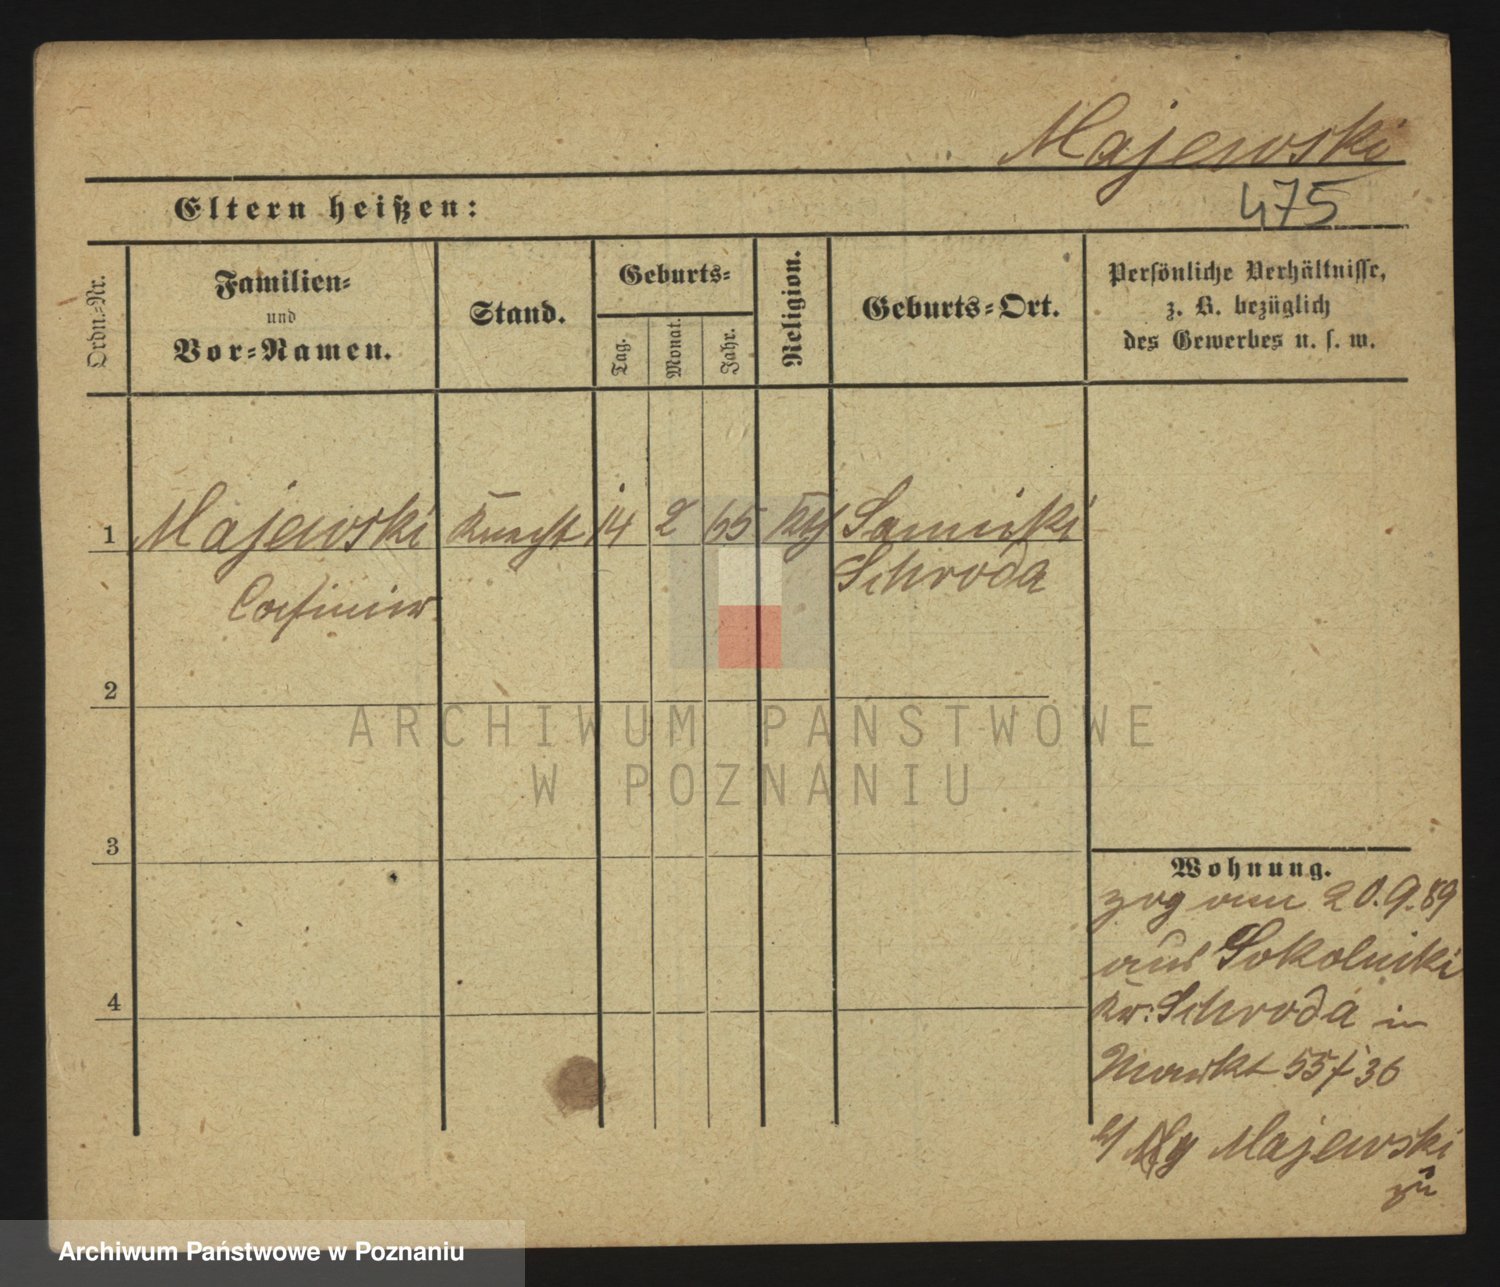 Majewski
475
Eltern heißen:
Ordn.-Nr.
Familien-
und
Vor-Namen.
Stand.
Geburts-
Tag.
Monat.
Jahr.
Religion.
Geburts-Ort.
Persönliche Verhältnisse,
z. B. bezüglich
des Gewerbes u. s. w.
1 Majewski Knecht 14 2 65 kth
Schroda
Casimir
2
ARCHIWUM PAŃSTWOWE
W POZNANIU
3
4
Wohnung.
zog am 20.9.89
aus Sokolniki
Kr: Schroda in
Markt 55/36
b/ Majewski
Archiwum Państwowe w Poznaniu